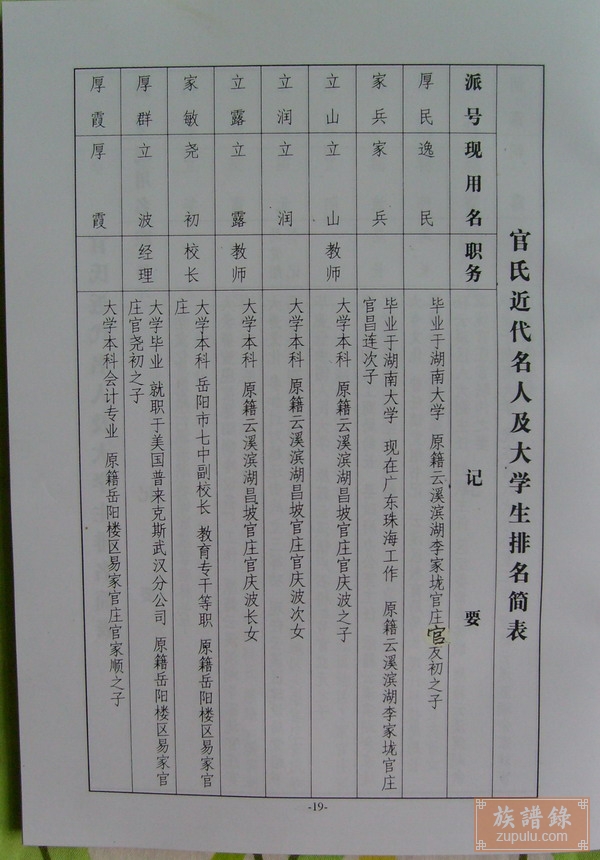 官氏近代名人及大学生排名简表
派号 现用名 职务 记要
厚民 逸民 毕业于湖南大学 原籍云溪滨湖李家垅官庄官友初之子
家兵 家兵 毕业于湖南大学 现在广东珠海工作 原籍云溪滨湖李家垅官庄
官昌连次子
立山 立山 教师 大学本科 原籍云溪滨湖昌坡官庄官庆波之子
立润 立润 大学本科 原籍云溪滨湖昌坡官庄官庆波次女
立露 立露 教师 大学本科 原籍云溪滨湖昌坡官庄官庆波长女
家敏 尧初 校长 大学本科 岳阳市七中副校长 教育专干等职 原籍岳阳楼区易家官
庄
厚群 立波 经理 大学毕业 就职于美国普来克斯武汉分公司 原籍岳阳楼区易家官
庄官尧初之子
厚霞 厚霞 大学本科会计专业 原籍岳阳楼区易家官庄官家顺之子
-19-
族譜錄
zupulu.com